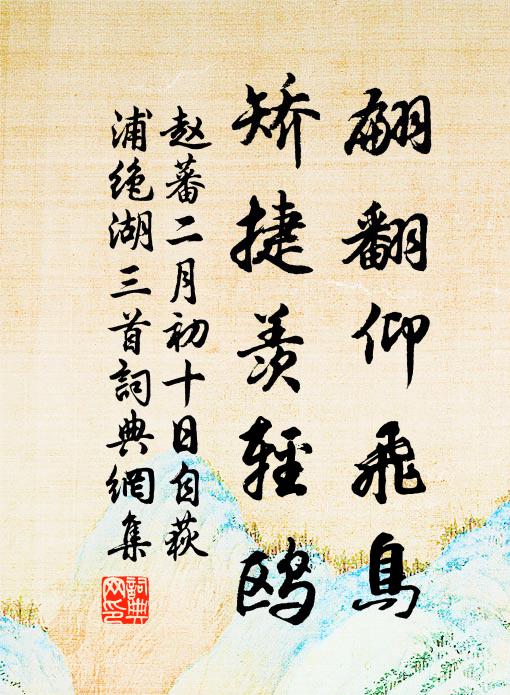 翩翻仰飛鳥
矯捷羨輕鸥
赵蕃二月初十日自荻
浦絶湖三首詞典網集
詞典網印